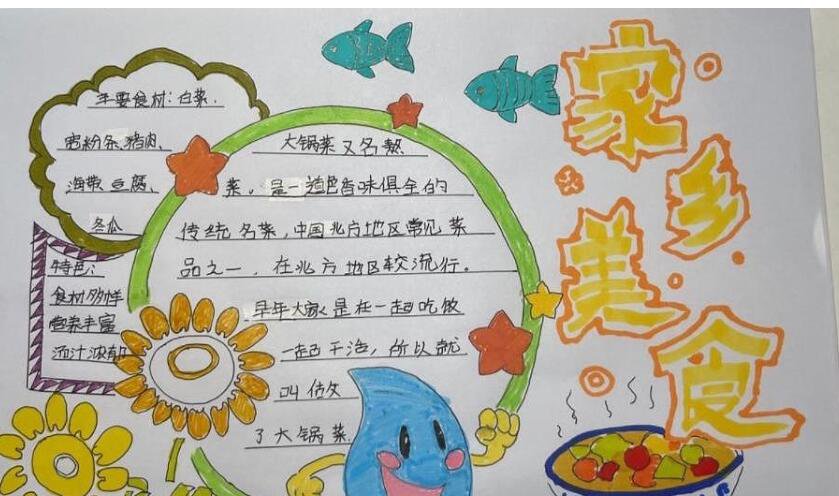 家乡美食
主要食材：白菜、
宽粉条、猪肉、
海带、豆腐、
冬瓜
特色：
食材多样
营养丰富
汤汁浓郁
大锅菜又名熬
菜，是一道色香味俱全的
传统名菜，中国北方地区常见菜
品之一，在北方地区较流行。
早年大家是在一起吃饭
一起干活，所以就
叫做
了大锅菜